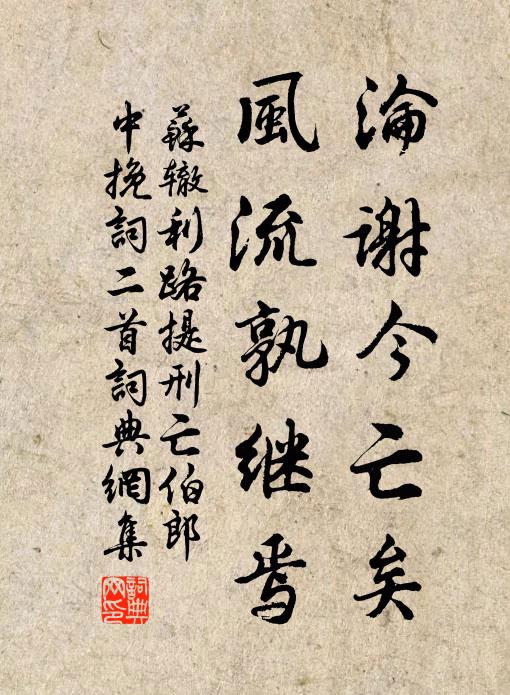 淪谢今亡矣
風流孰继焉
蘇辙利路提刑亡伯郎
中挽詞二首詞典網集
詞典网印